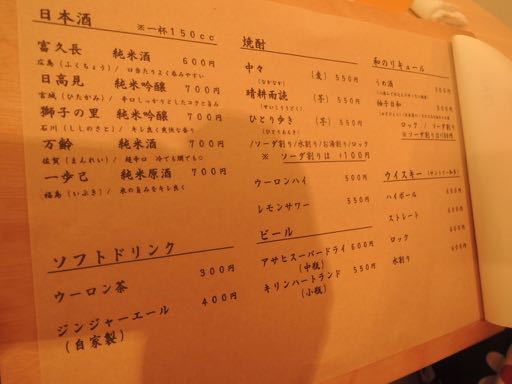 日本酒 ※一杯150cc
富久長 純米酒 600円
広島（ふくちょう）/ 口当たりよく呑みやすい
日高見 純米吟醸 700円
宮城（ひたかみ）/ 辛口しっかりとしたコクと旨み
獅子の里 純米吟醸 700円
石川（ししのさと）/ キレ良く爽快な香り
万齢 純米酒 700円
佐賀（まんれい）/ 超辛口 冷でも燗でも○
一歩己 純米原酒 700円
福島（いぶき）/ 米の旨みをキレ良く
ソフトドリンク
ウーロン茶 300円
ジンジャーエール 400円
（自家製）
焼酎
中々 （麦） 550円
（なかなか）
晴耕雨読 （芋） 550円
（せいこううどく）
ひとり歩き （芋） 550円
（ひとりあるき）
/ソーダ割り/水割り/お湯割り/ロック
※ ソーダ割りは +100円
ウーロンハイ 500円
レモンサワー 550円
ビール
アサヒスーパードライ 600円
（中瓶）
キリンハートランド 550円
（小瓶）
和のリキュール
うめ酒 500円
柚子日和 500円
ロック / ソーダ割り
※ソーダ割り+100円
ウイスキー
ハイボール
ストレート
ロック 600円
水割り 600円